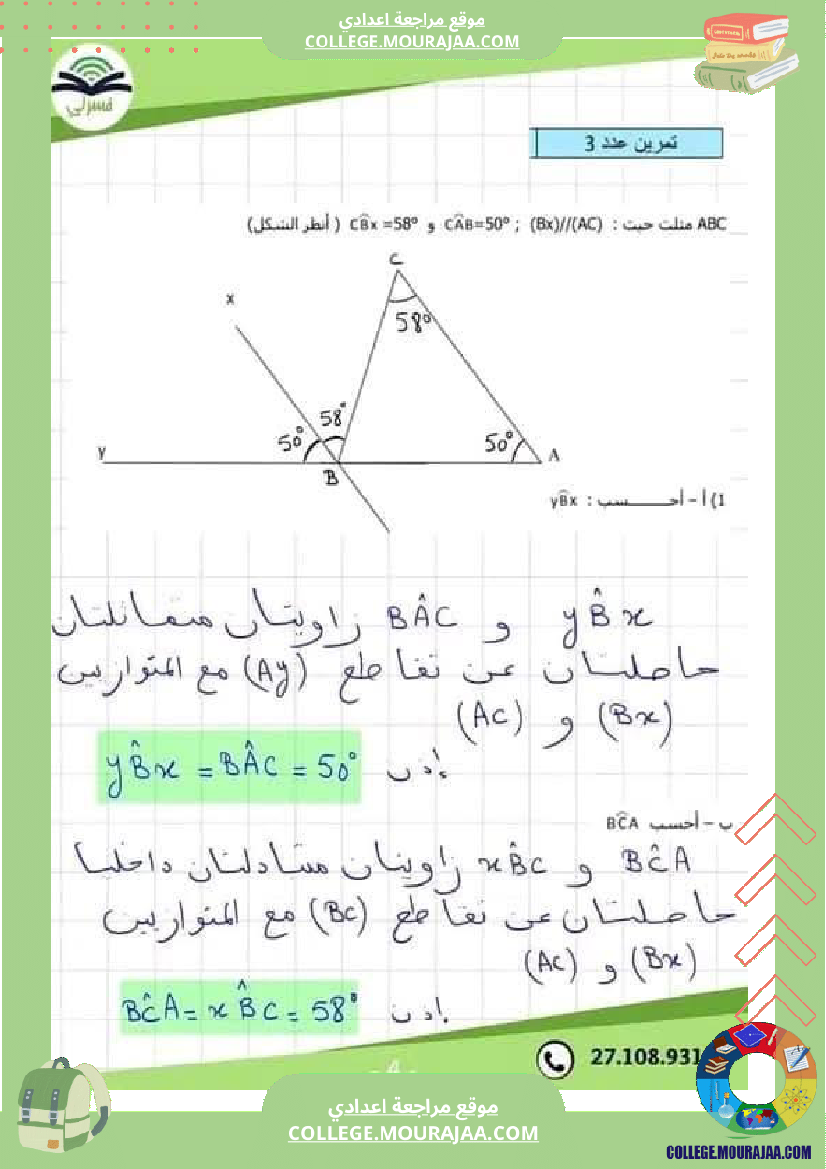 موقع مراجعة اعدادي
COLLEGE.MOURAJAA.COM
فسرلي
تمرين عدد 3
ABC مثلث حيث : (Bx)//(AC) ; CÂB=50° و CB̂x =58° ( أنظر الشكل)
C
x
58°
58°
50°
50°
y
A
B
1) أ – أحـــــسب : yB̂x
yB̂x و BÂC زاويتان متماثلتان
حاصلتان عن تقاطع (Ay) مع المتوازيين
(Bx) و (AC)
إذن yB̂x = BÂC = 50°
ب – أحسب BĈA
BĈA و xB̂C زاويتان متبادلتان داخليا
حاصلتان عن تقاطع (BC) مع المتوازيين
(Bx) و (AC)
إذن BĈA = xB̂C = 58°
27.108.931
- 4 -
موقع مراجعة اعدادي
COLLEGE.MOURAJAA.COM
COLLEGE.MOURAJAA.COM